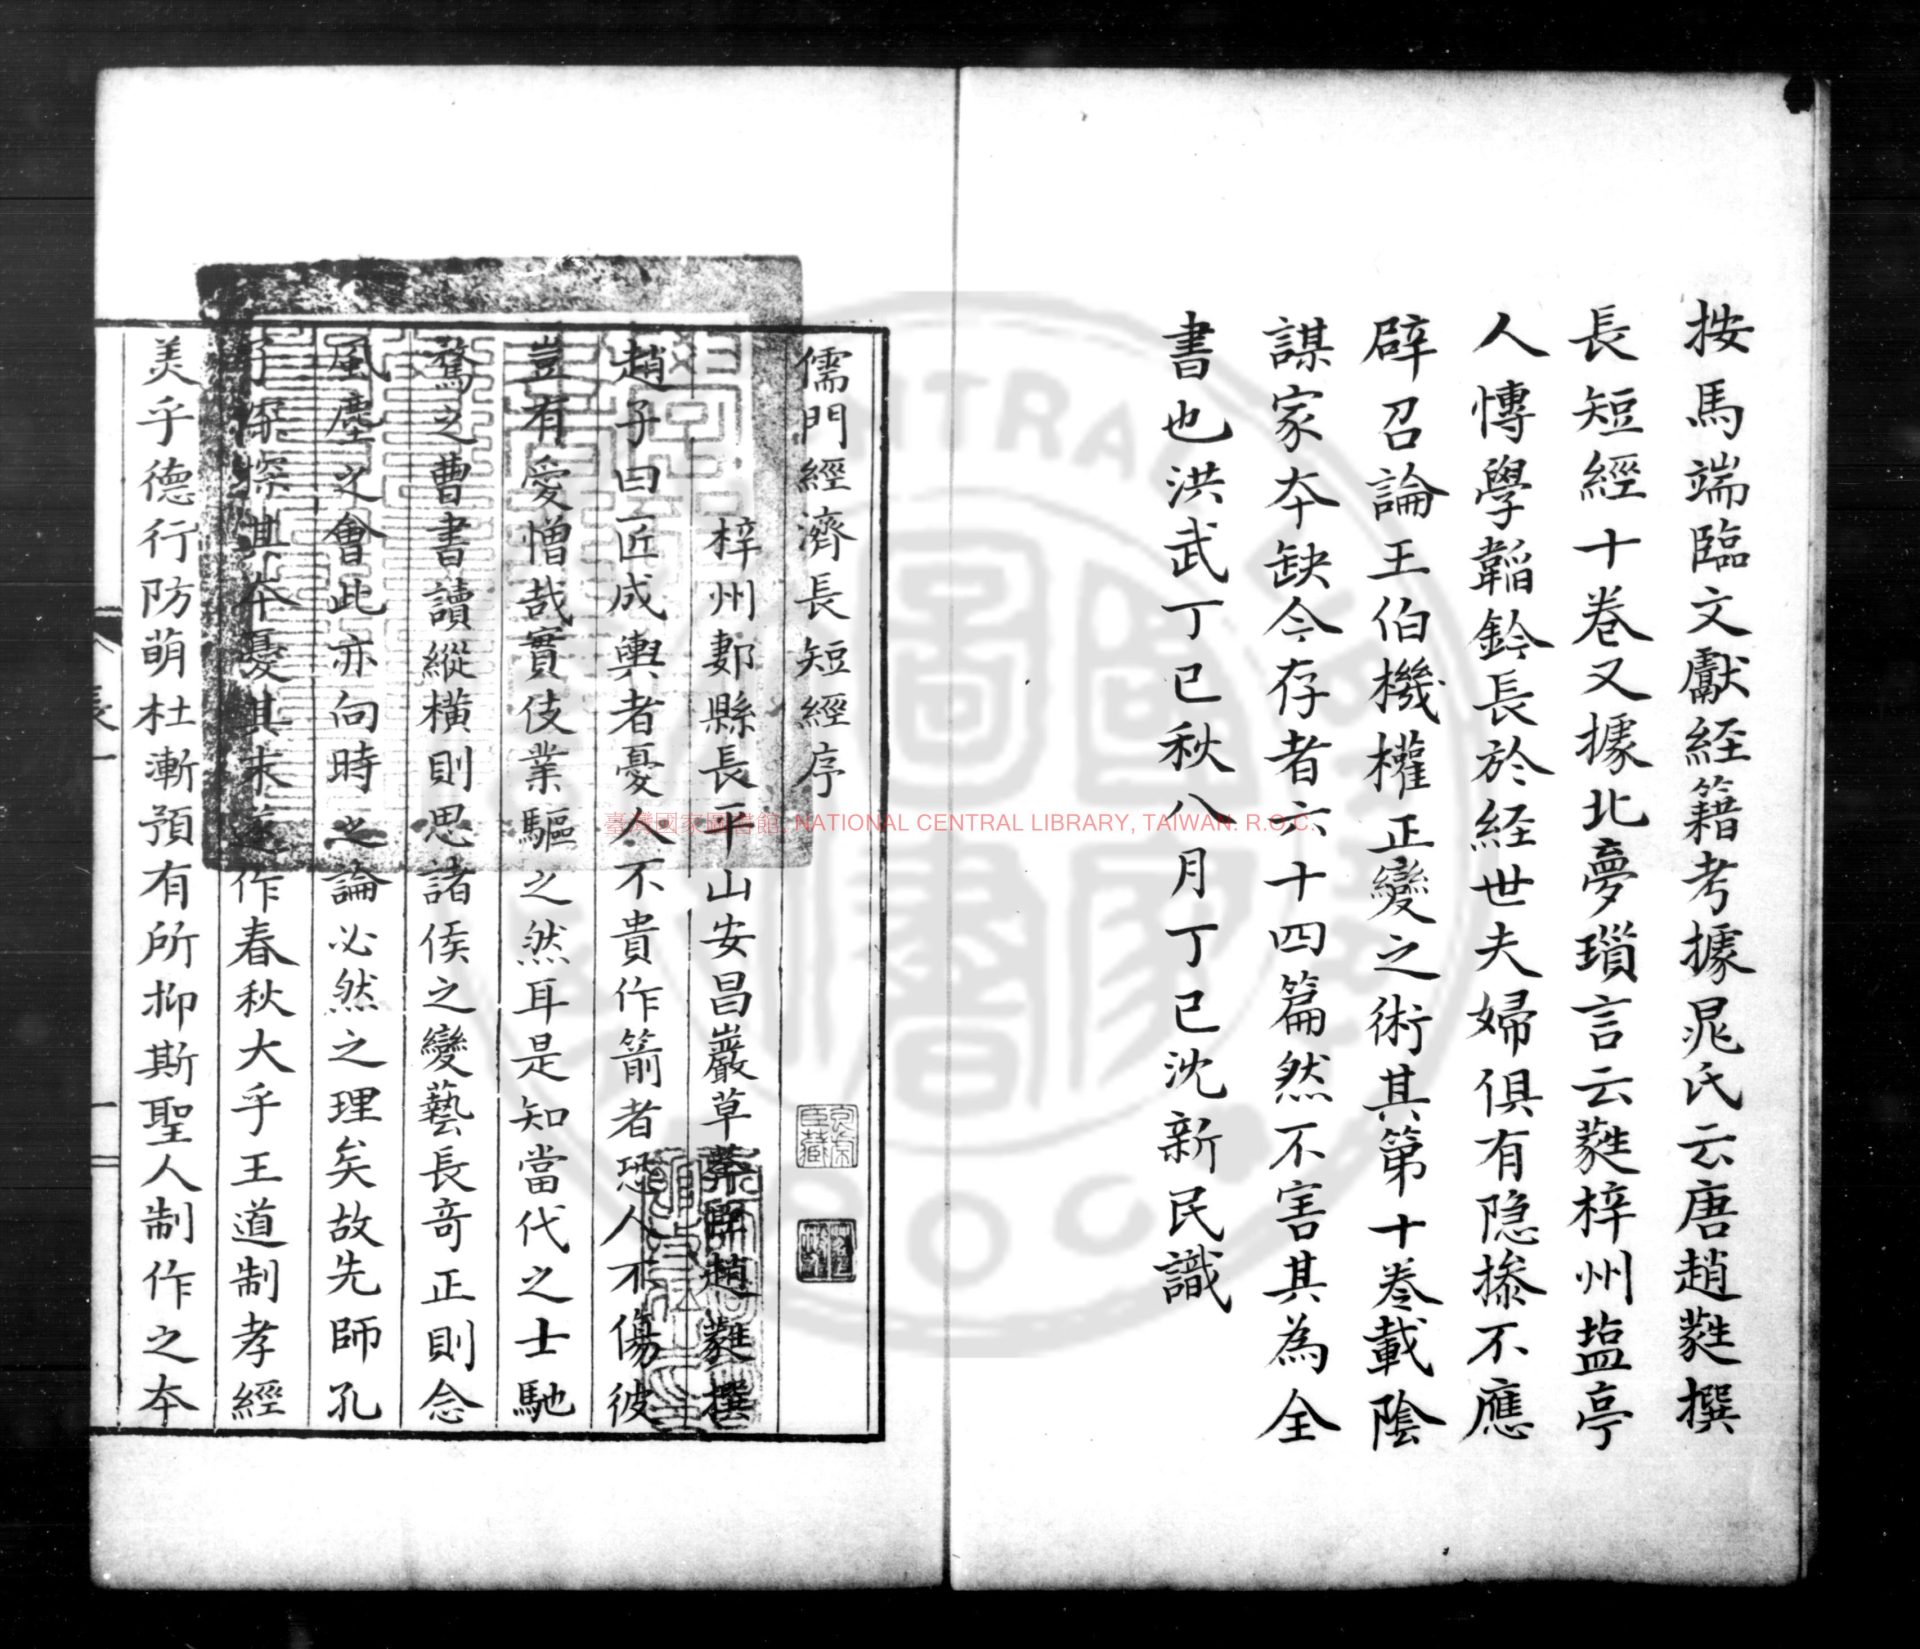 按馬端臨文獻經籍考據晁氏云唐趙蕤撰
長短經十卷又據北夢瑣言云蕤梓州塩亭
人愽學韜鈐長於経世夫婦俱有隐操不應
辟召論王伯機權正變之術其第十卷載陰
謀家本缺今存者六十四篇然不害其為全
書也洪武丁巳秋八月丁巳沈新民識
儒門經濟長短經序
梓州郪縣長平山安昌巖草莽臣趙蕤撰
趙子曰匠成輿者憂人不貴作箭者恐人不傷彼
豈有愛憎哉實伎業驅之然耳是知當代之士馳
騖之曹書讀縱橫則思諸侯之變藝長奇正則念
風塵之會此亦向時之論必然之理矣故先師孔
子深探其本憂其末遂作春秋大乎王道制孝經
美乎德行防萌杜漸預有所抑斯聖人制作之本
長一
一
臺灣國家圖書館, NATIONAL CENTRAL LIBRARY, TAIWAN. R.O.C.